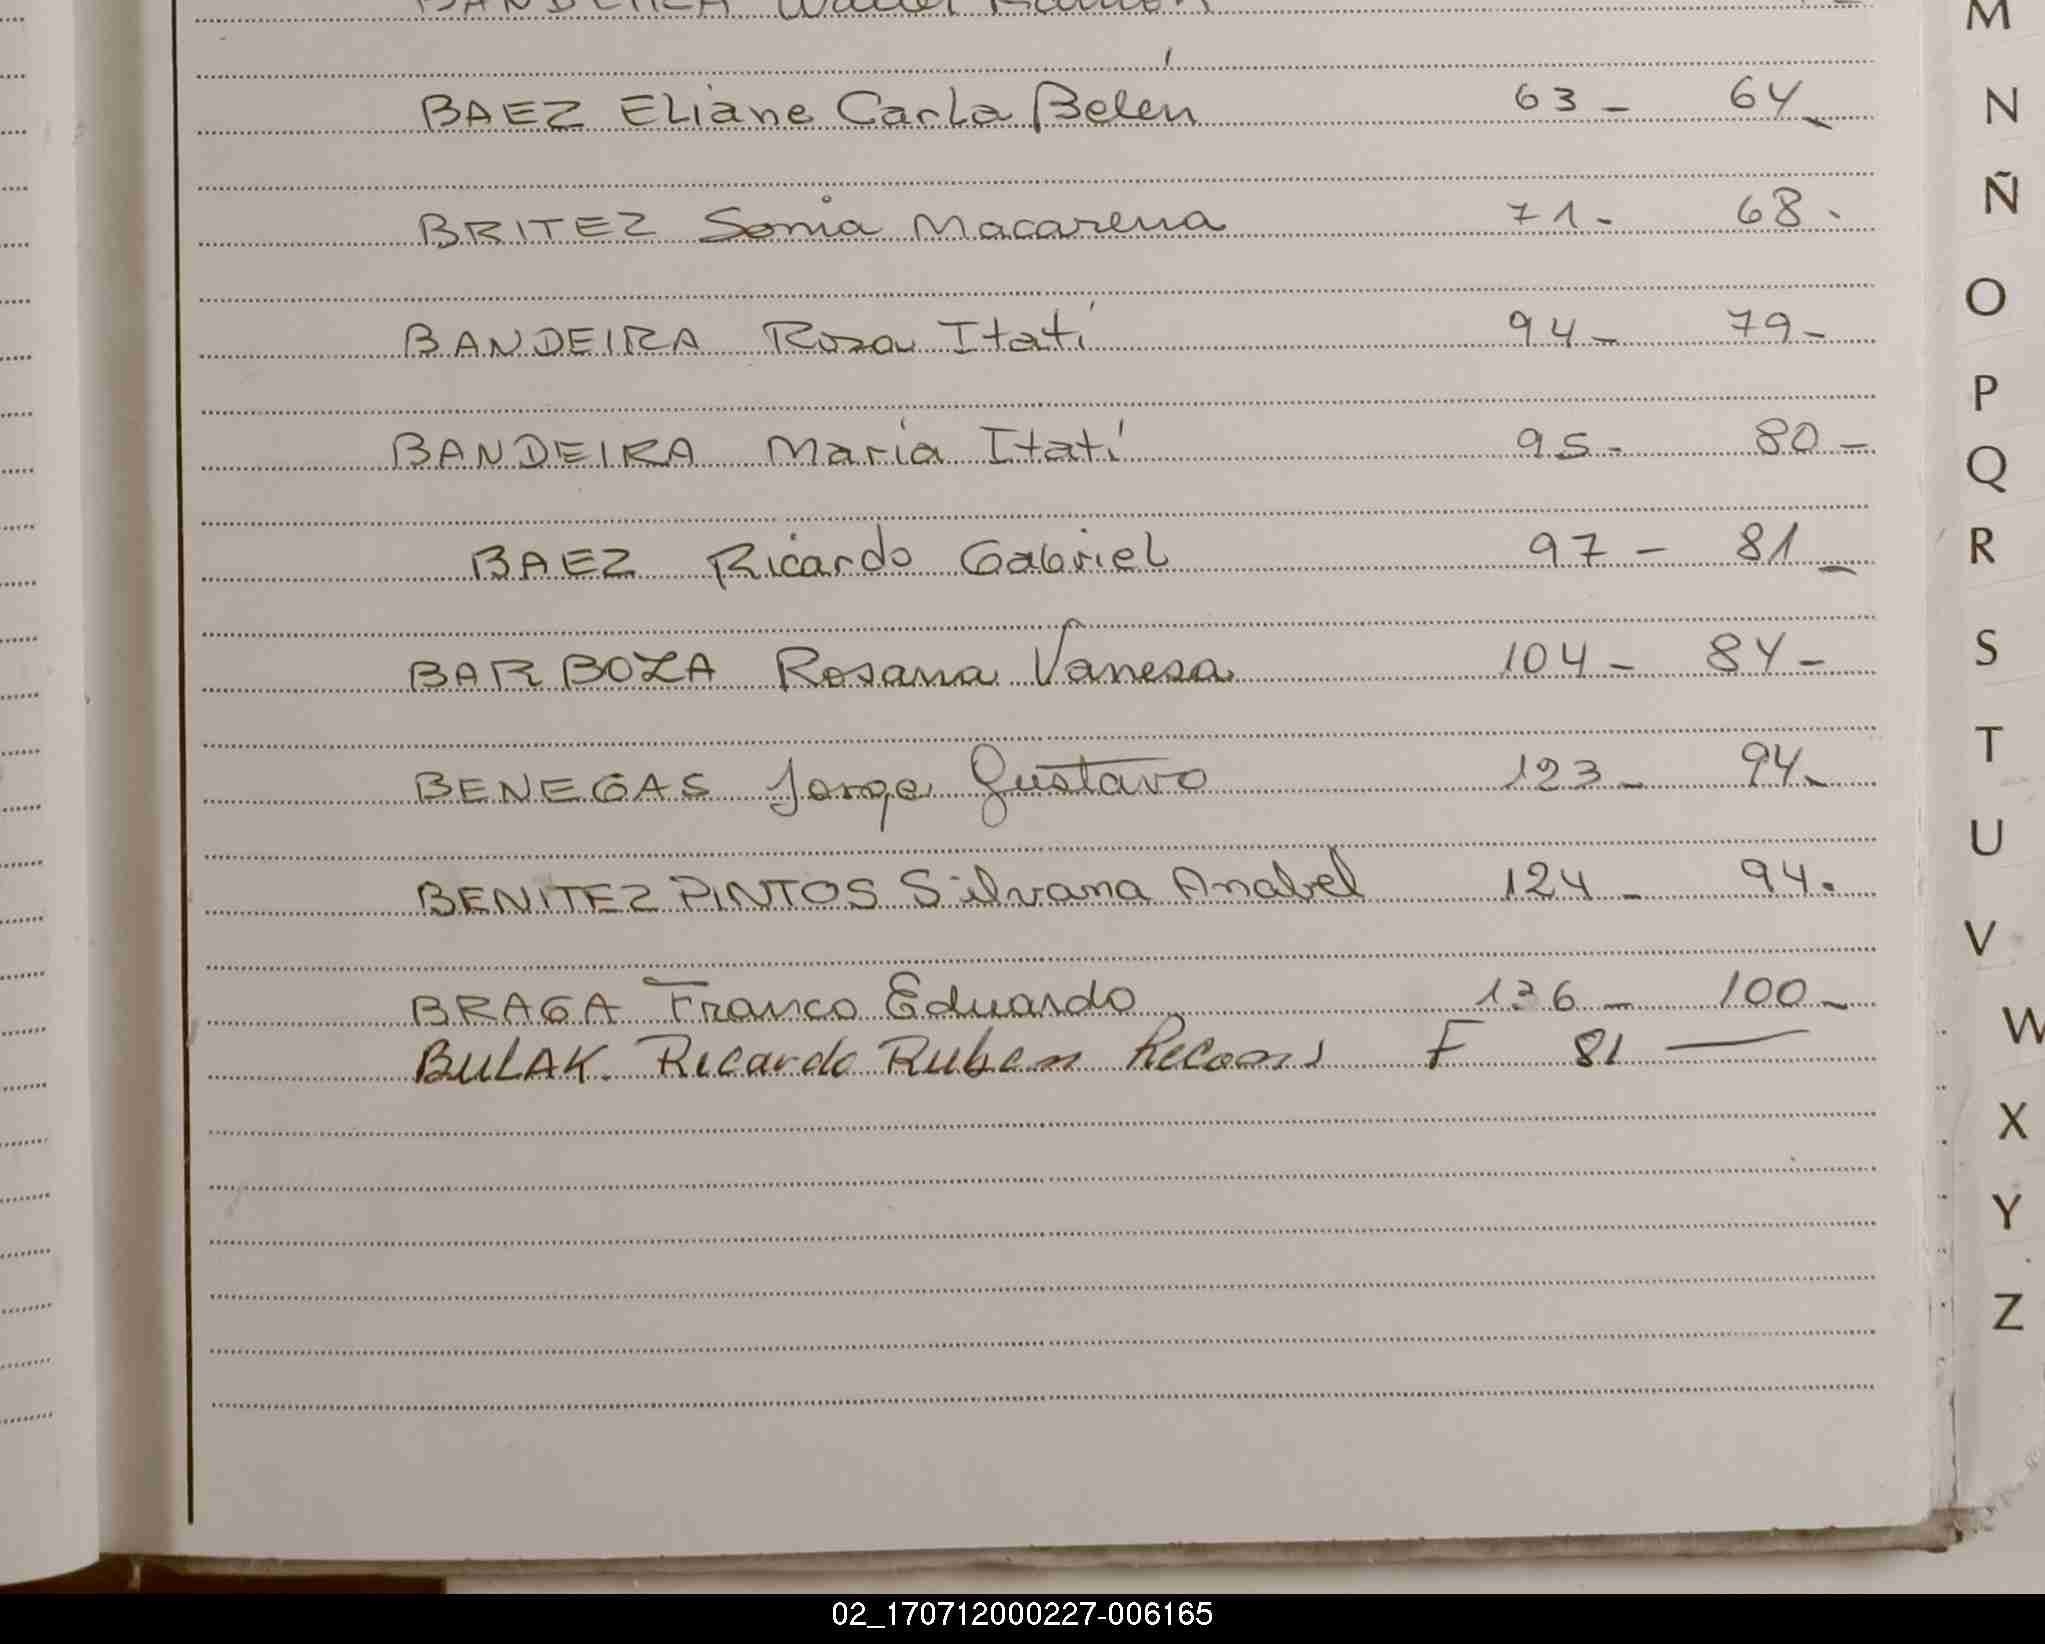 BANDEIRA Walter Ramón
BAEZ Eliane Carla Belén 63 - 64 -
BRITEZ Sonia Macarena 71 - 68 -
BANDEIRA Rosa Itatí 94 - 79 -
BANDEIRA María Itatí 95 - 80 -
BAEZ Ricardo Gabriel 97 - 81 -
BARBOZA Rosana Vanesa 104 - 84 -
BENEGAS Jorge Gustavo 123 - 94 -
BENITEZ PINTOS Silvana Anabel 124 - 94 -
BRAGA Franco Eduardo 136 - 100 -
BULAK. Ricardo Ruben F 81 —
M
N
Ñ
O
P
Q
R
S
T
U
V
W
X
Y
Z
02_170712000227-006165